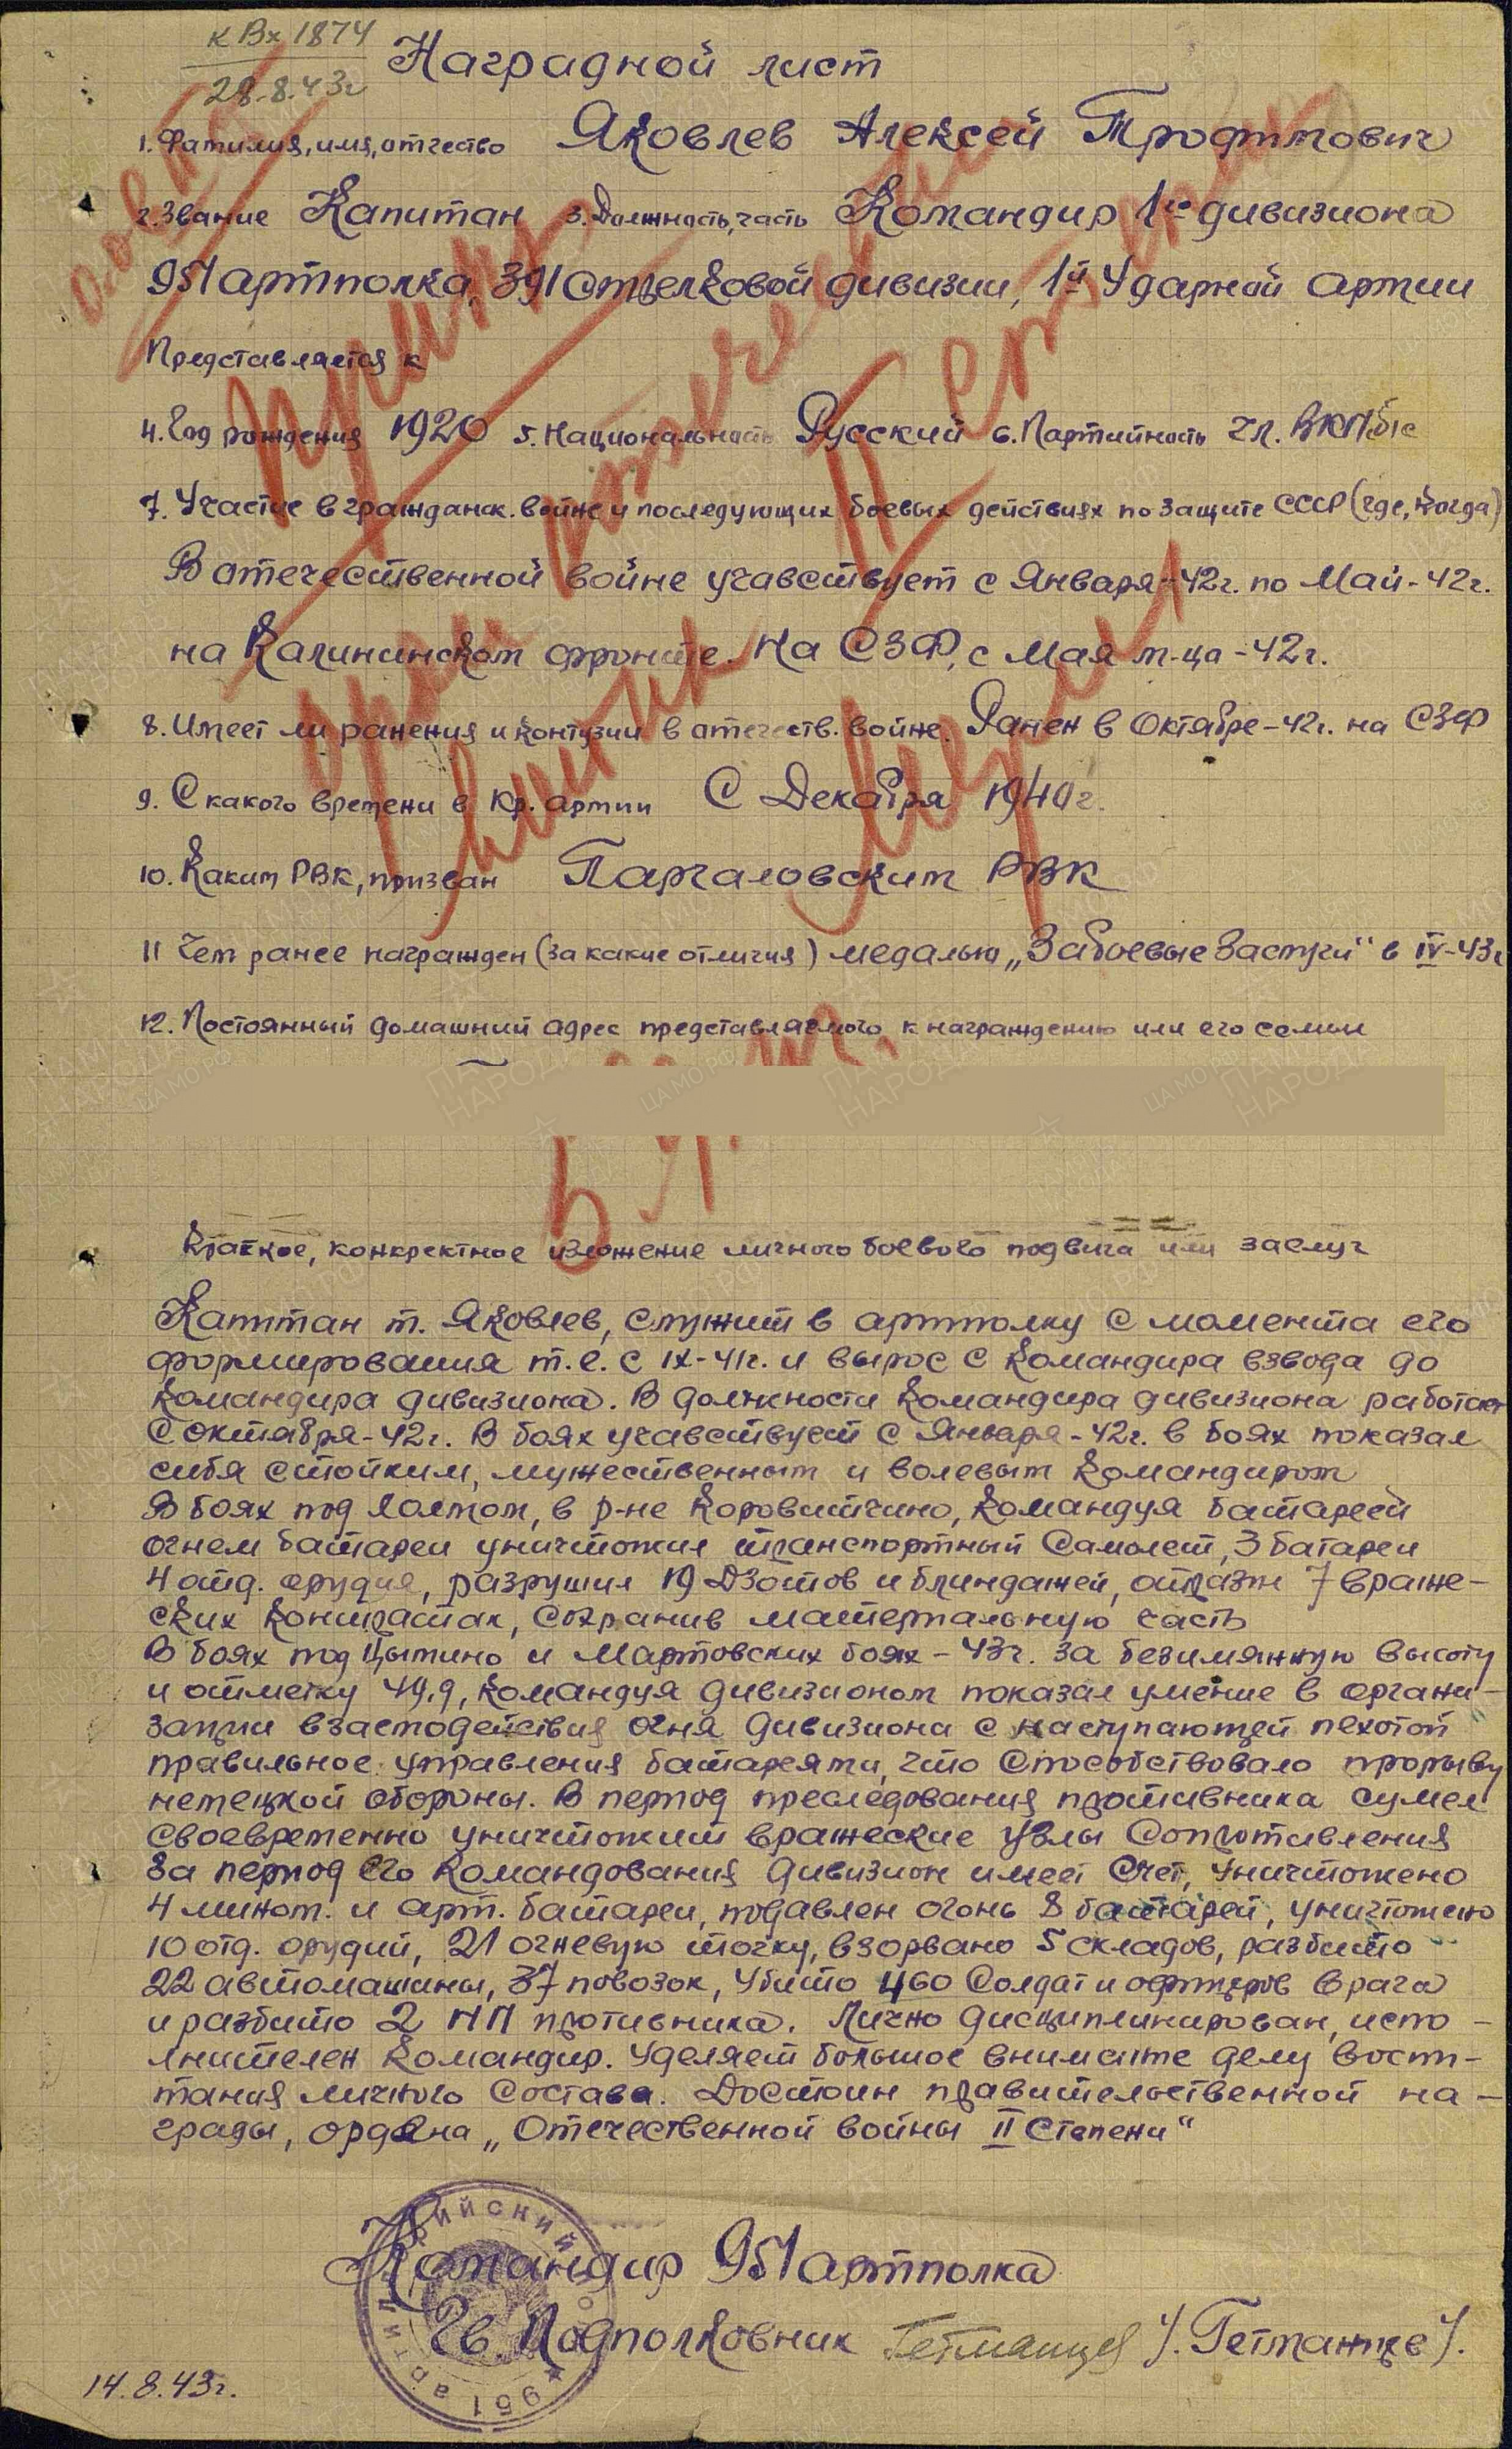 к Вх 1874
28.8.43г
Наградной лист
1. Фамилия, имя, отчество Яковлев Алексей Трофимович
2. Звание Капитан 3. Должность, часть Командир 1го дивизиона
951 артполка, 391 Стрелковой дивизии, 1й Ударной армии
Представляется к
4. Год рождения 1920 5. Национальность Русский 6. Партийность чл. ВКП/б/с
7. Участие в гражданск. войне и последующих боевых действиях по защите СССР (где, когда)
В отечественной войне учавствует с Января-42г. по Май-42г.
на Калининском фронте. На СЗФ, с Мая м-ца-42г.
8. Имеет ли ранения и контузии в отечеств. войне. Ранен в Октябре-42г. на СЗФ
9. С какого времени в Кр. армии С Декабря 1940г.
10. Каким РВК, призван Парголовским РВК
11 Чем ранее награжден (за какие отличия) медалью „За боевые Заслуги" в IV-43г
12. Постоянный домашний адрес представляемого к награждению или его семьи
Краткое, конкретное изложение личного боевого подвига или заслуг
Капитан т. Яковлев, служит в артполку с момента его
формирования т.е. с IX-41г. и вырос с командира взвода до
командира дивизиона. В должности командира дивизиона работает
с октября-42г. В боях учавствует с Января-42г. в боях показал
себя стойким, мужественным и волевым командиром
В боях под Холмом, в р-не Коровитчино, командуя батареей
огнем батареи уничтожил транспортный самолет, 3 батареи
4 отд. орудия, разрушил 19 Дзотов и блиндажей, отразил 7 враже-
ских контратак, сохранив материальную часть
В боях под Цытино и Мартовских боях-43г. за безимянную высоту
и отметку 49,9, командуя дивизионом показал умение в органи-
зации взаимодействия огня дивизиона с наступающей пехотой
правильное управления батареями, что способствовало прорыву
немецкой обороны. В период преследования противника сумел
своевременно уничтожит вражеские узлы сопротивления
За период его командования дивизион имеет счет, уничтожено
4 минот. и арт. батареи, подавлен огонь 8 батарей, уничтожено
10 отд. орудий, 21 огневую точку, взорвано 5 складов, разбито
22 автомашины, 37 повозок, убито 460 солдат и офицеров врага
и разбито 2 НП противника. Лично дисциплинирован, испо-
лнителен командир. Уделяет большое внимание делу воспи-
тания личного состава. Достоин правительственной на-
грады, ордена „Отечественной войны II Степени"
Командир 951 артполка
Гв. Подполковник Гетманцев /. Гетманцев /.
14.8.43г.